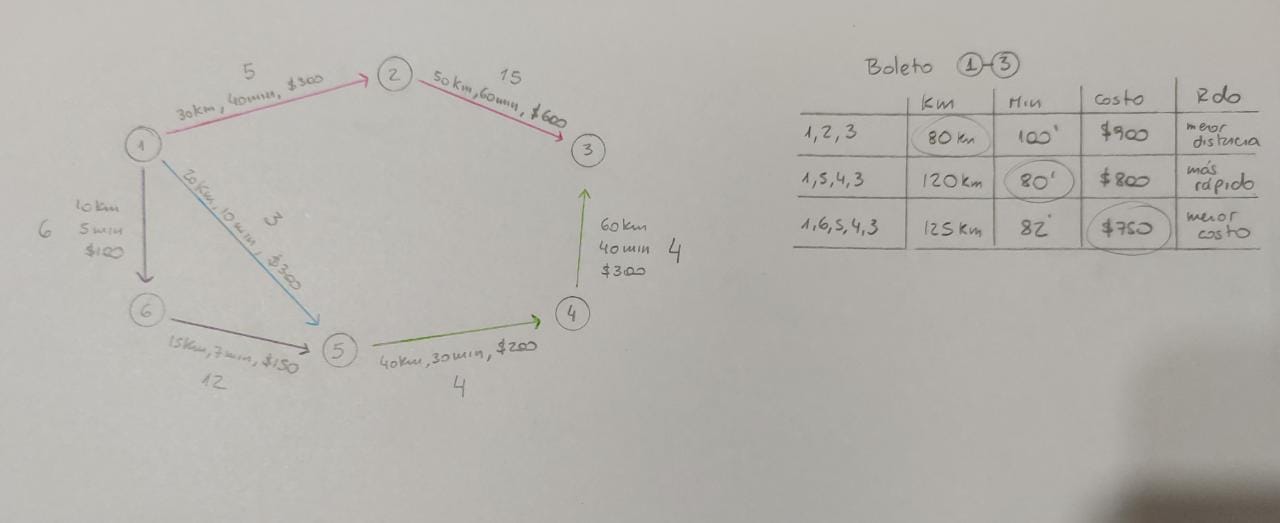 5
30km, 40min, $300
2
15
50km, 60min, $600
1
3
20km, 10min, $300
3
6
10km
5min
$100
60km
40min
$300
4
6
15km, 7min, $150
12
5
40km, 30min, $200
4
4
Boleto 1-3
Km Min Costo Rdo
1, 2, 3 80 km 100' $900 menor distancia
1, 5, 4, 3 120 km 80' $800 más rápido
1, 6, 5, 4, 3 125 km 82' $750 menor costo